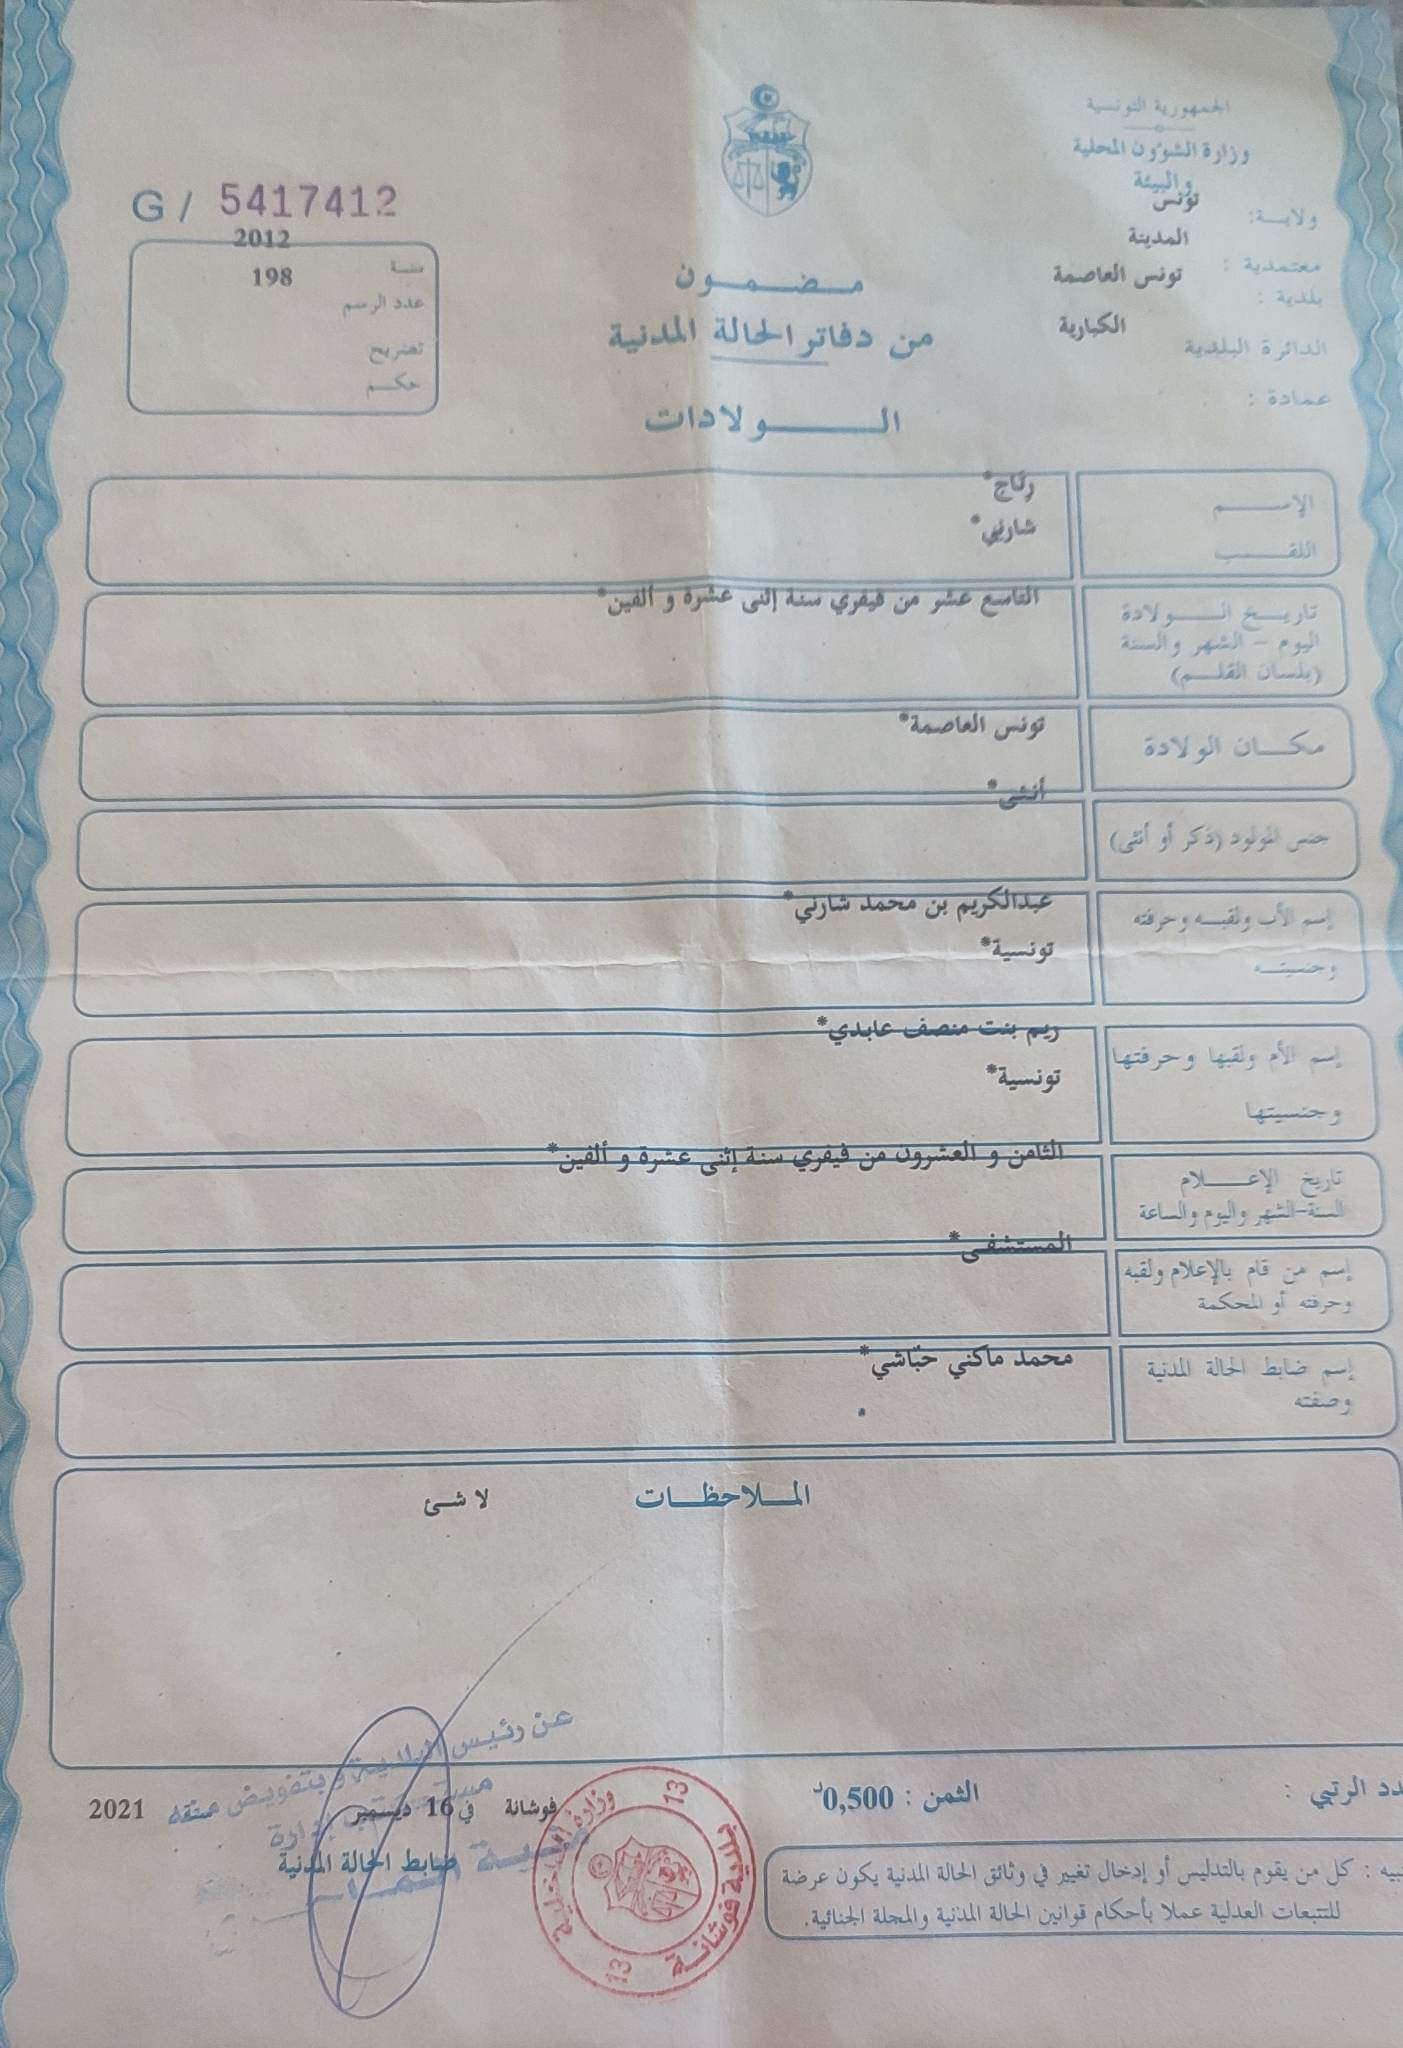 الجمهورية التونسية
وزارة الشؤون المحلية
والبيئة
ولايـة: تونس
معتمدية : المدينة
بلدية : تونس العاصمة
الدائرة البلدية الكبارية
عمادة :
G / 5417412
سنـة 2012
عدد الرسم 198
تصريح
حكـم
مـضـمـون
من دفاتر الحالة المدنية
الـولادات
الإسـم رتاج*
اللقـب شارني*
تاريـخ الـولادة
اليوم - الشهر والسنة
(بلسان القلـم)
التاسع عشر من فيفري سنة إثنى عشرة و ألفين*
مكـان الولادة تونس العاصمة*
جنس المولود (ذكر أو أنثى) أنثى*
إسم الأب ولقبـه وحرفته عبدالكريم بن محمد شارني*
وجنسيتـه تونسية*
إسم الأم ولقبها وحرفتها ريم بنت منصف عابدي*
وجنسيتها تونسية*
تاريخ الإعـلام
السنة-الشهر واليوم والساعة
الثامن و العشرون من فيفري سنة إثنى عشرة و ألفين*
إسم من قام بالإعلام ولقبه
وحرفته أو المحكمة
المستشفى*
إسم ضابط الحالة المدنية
وصفته
محمد ماكني حبّاشي*
*
الملاحظـات
لا شئ
الرتبي :
الثمن : 0,500د
فوشانة في 16 ديسمبر 2021
ضابط الحالة المدنية
عن رئيس البلدية و بتفويض منه
كل من يقوم بالتدليس أو إدخال تغيير في وثائق الحالة المدنية يكون عرضة
للتتبعات العدلية عملا بأحكام قوانين الحالة المدنية والمجلة الجنائية.
وزارة الداخلية
13
بلدية فوشانة
13